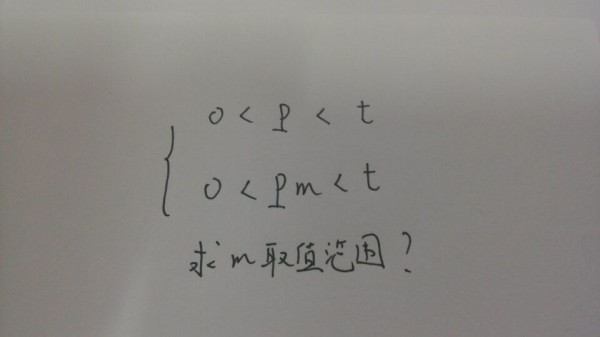 0 < P < t
0 < Pm < t
求m取值范围?